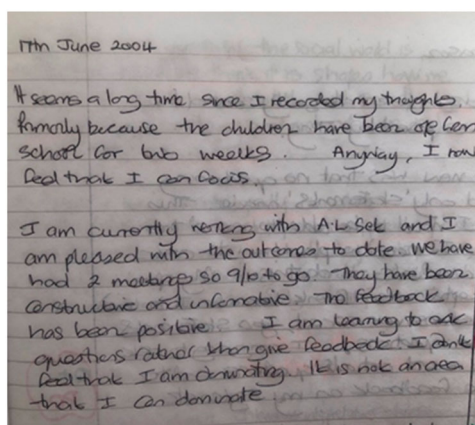 17th June 2004
It seems a long time since I recorded my thoughts.
because the children have been off from
school for two weeks. Anyway, I now
feel that I can focus.
I am currently working with A.L Set and I
am pleased with the outcomes to date. We have
had 2 meetings so 9/10 to go. They have been
constructive and informative. The feedback
has been positive. I am learning to ask
questions rather than give feedback. I don't
feel that I am dominating. It is not an area
that I can dominate